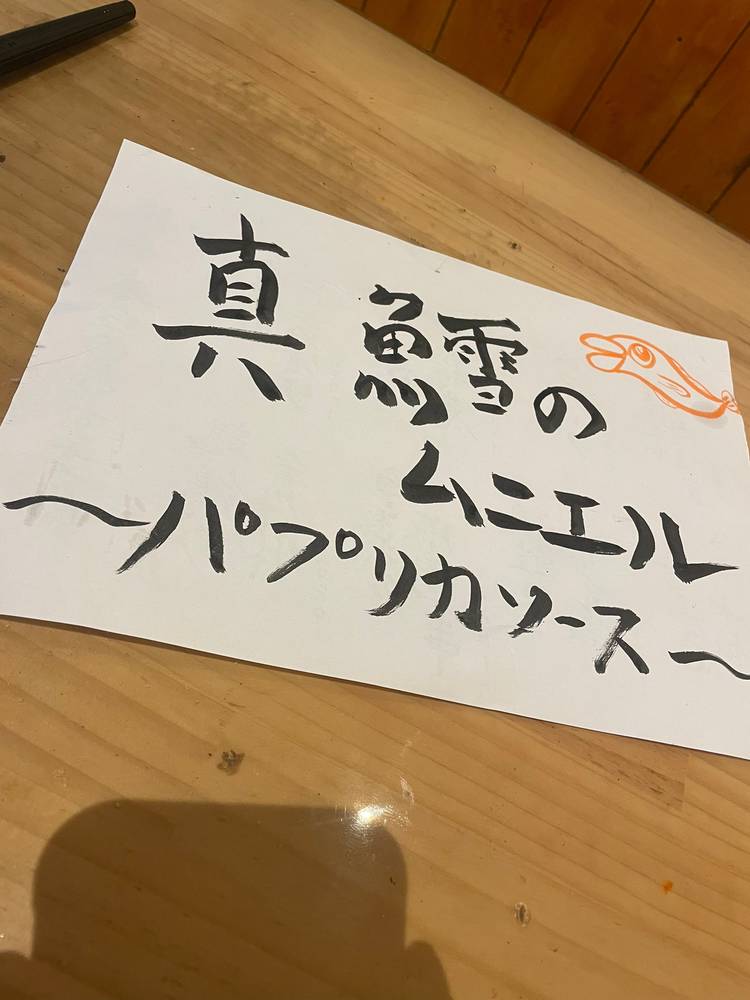 真鱈の
ムニエル
～パプリカソース～